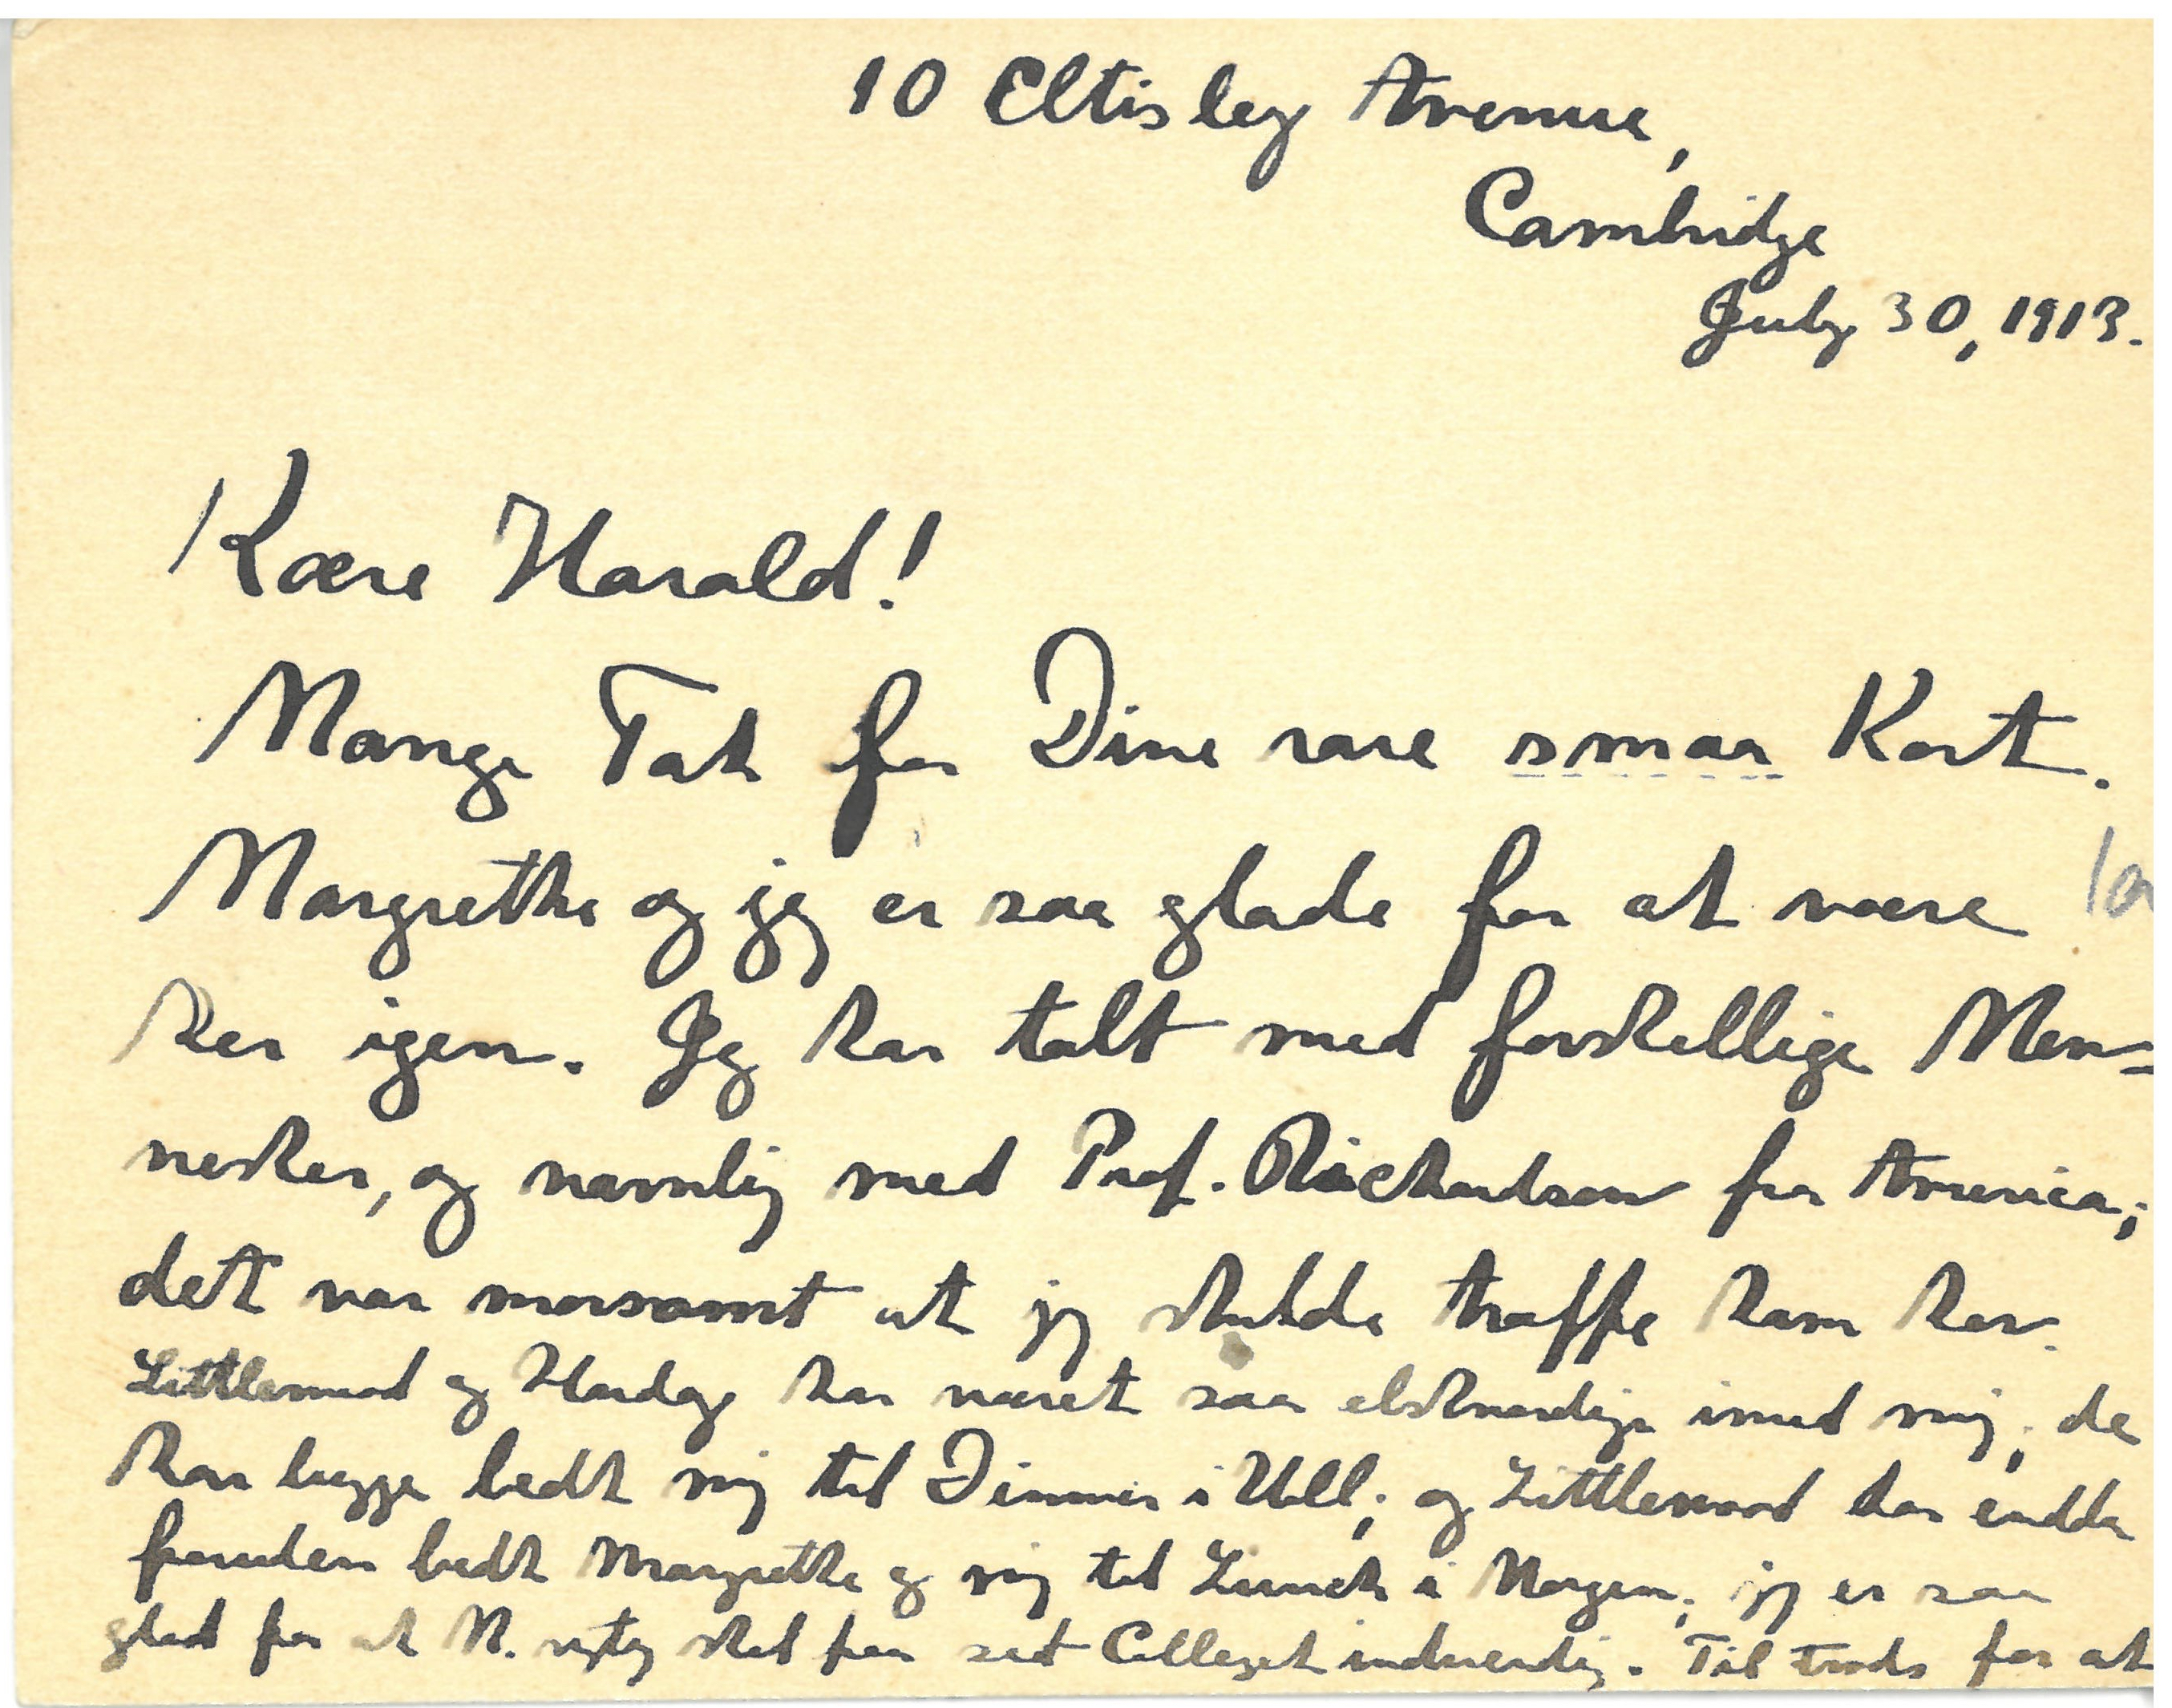 10 Eltisley Avenue,
Cambridge
July 30, 1913.
Kære Harald!
Mange Tak for Dine rare smaa Kort.
Margrethe og jeg er saa glade for at være
her igen. Jeg har talt med forskellige Men=
nesker, og navnlig med Prof. Richardson fra America;
det var morsomt at jeg skulde træffe ham her.
Littlewood og Hardy har været saa elskværdige imod mig; de
har begge bedt mig til Dinner i Hall; og Littlewood har endda
foruden bedt Margrethe og mig til Lunch i Morgen; jeg er saa
glad for at M. rigtig skal faa set Colleget indvendig. Til trods for at